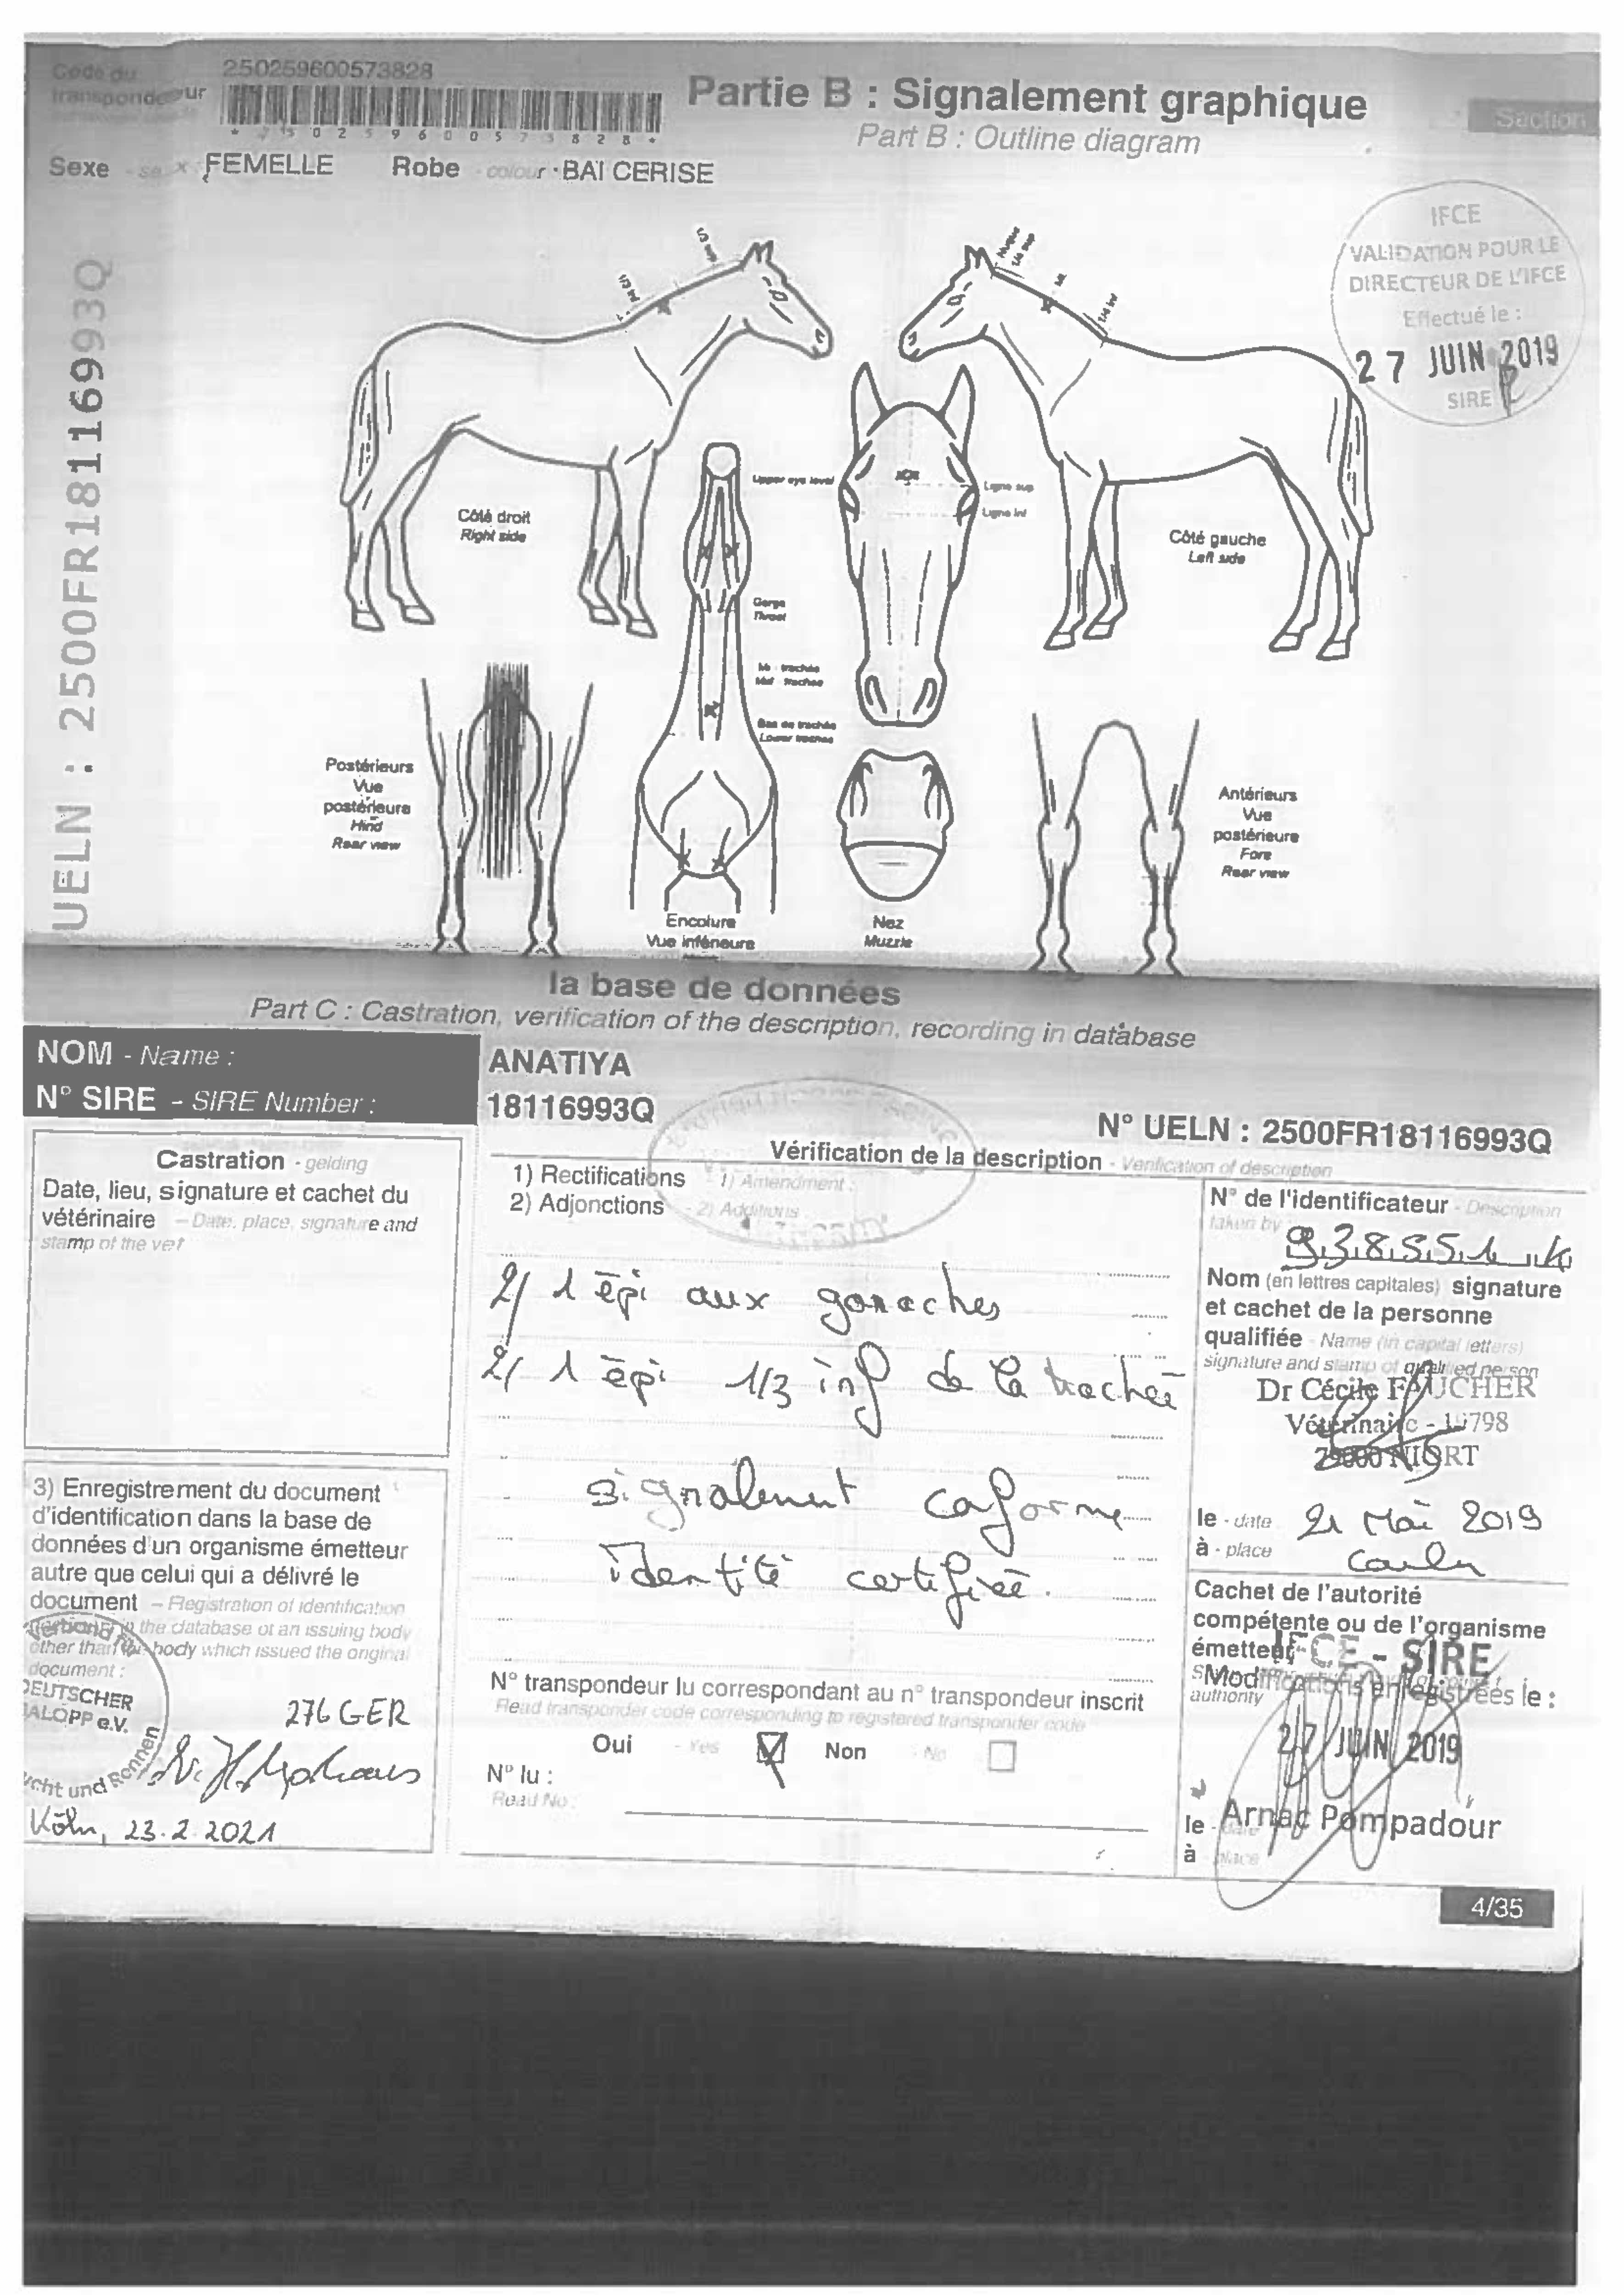 Code du
transpondeur
250259600573828
Partie B : Signalement graphique
Part B : Outline diagram
Section
Sexe - sex FEMELLE Robe - colour · BAI CERISE
IFCE
VALIDATION POUR LE
DIRECTEUR DE L'IFCE
Effectué le :
27 JUIN 2019
SIRE
UELN : 2500FR18116993Q
1/3 sup
1/3 inf
Nuque
1/4 sup
Mi
1/4 inf
Côté droit
Right side
Upper eye level
Ligne sup
Ligne inf
Côté gauche
Left side
Gorge
Throat
Mi - trachée
Mid - trachea
Bas de trachée
Lower trachea
Postérieurs
Vue
postérieure
Hind
Rear view
Antérieurs
Vue
postérieure
Fore
Rear view
Encolure
Vue inférieure
Nez
Muzzle
la base de données
Part C : Castration, verification of the description, recording in database
NOM - Name : ANATIYA
N° SIRE - SIRE Number : 18116993Q
N° UELN : 2500FR18116993Q
Castration - gelding
Date, lieu, signature et cachet du
vétérinaire - Date, place, signature and
stamp of the vet
Vérification de la description - Verification of description
1) Rectifications - 1) Amendment :
2) Adjonctions - 2) Additions
2/ 1 épi aux ganaches
2/ 1 épi 1/3 inf de la trachée
signalement conforme
identité certifiée.
N° de l'identificateur - Description
taken by
Nom (en lettres capitales) signature
et cachet de la personne
qualifiée - Name (in capital letters)
signature and stamp of qualified person
Dr Cécile FAUCHER
Vétérinaire
79000 NIORT
le - date 21 Mai 2019
à - place
3) Enregistrement du document
d'identification dans la base de
données d'un organisme émetteur
autre que celui qui a délivré le
document - Registration of identification
in the database of an issuing body
other than the body which issued the original
document :
DEUTSCHER
GALOPP e.V.
276 GER
Köln, 23.2.2021
N° transpondeur lu correspondant au n° transpondeur inscrit
Read transponder code corresponding to registered transponder code
Oui - Yes Non - No
N° lu :
Read No :
Cachet de l'autorité
compétente ou de l'organisme
émetteur
IFCE - SIRE
authority
Modifications enregistrées le :
27 JUIN 2019
le - date Arnac Pompadour
à - place
4/35